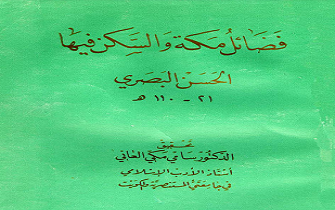 فضائل مكة والسكن فيها
الحسن البصري
٢١ - ١١٠ هـ
تحقيق
الدكتور سامي مكي العاني
أستاذ الأدب الإسلامي
في جامعتي المستنصرية والكويت